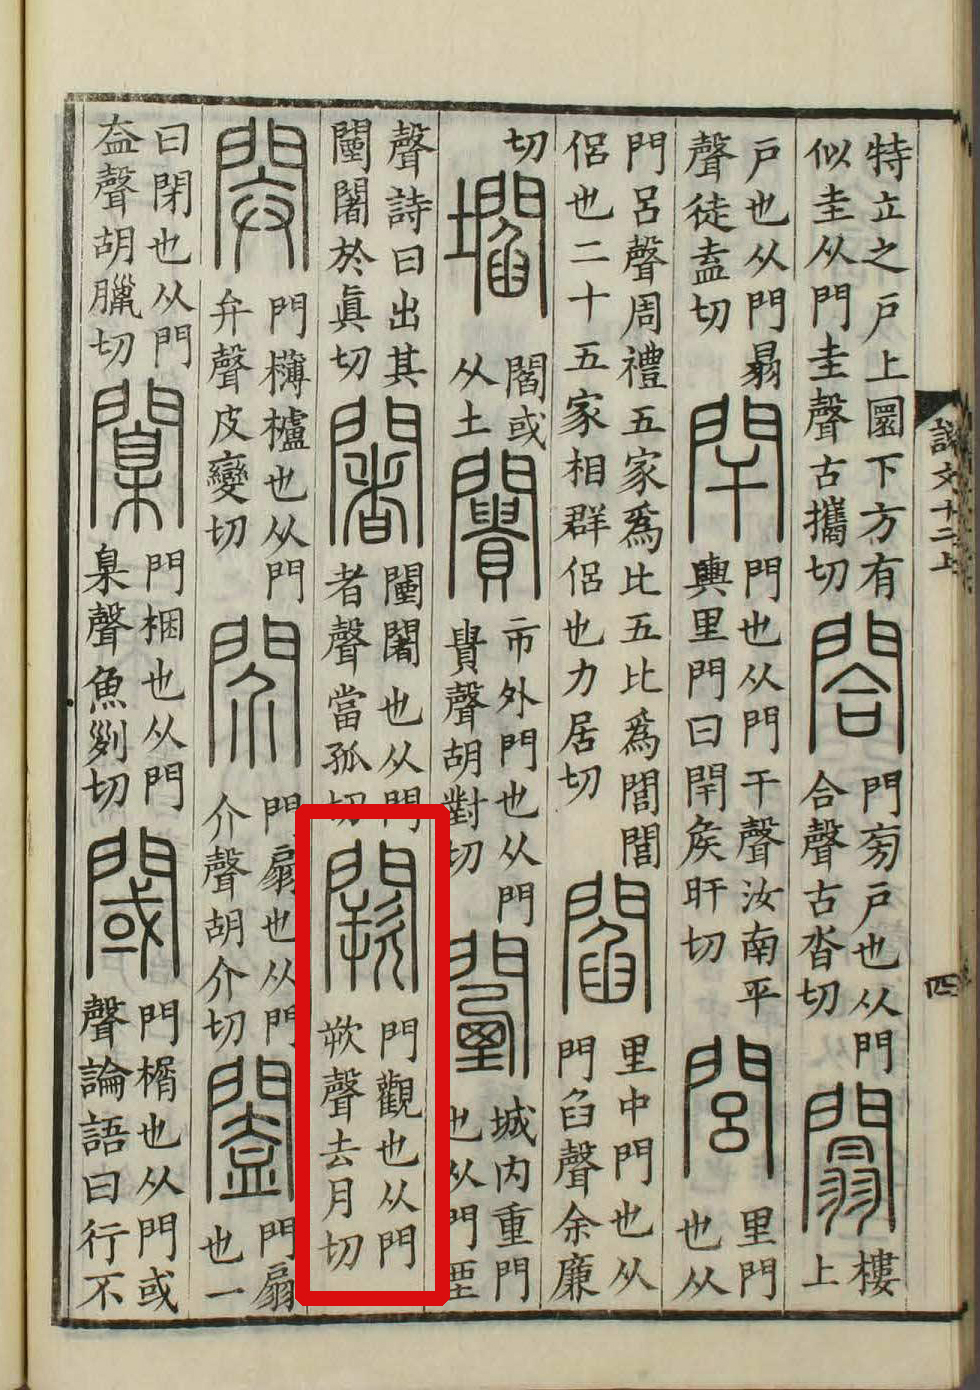 特立之戶上圜下方有
似圭从門圭聲古攜切
閤
門旁戶也从門
合聲古沓切
闒
樓
上
戶也从門𦐇
聲徒盍切
閈
門也从門干聲汝南平
輿里門曰閈矦旰切
閭
里門
也从
門呂聲周禮五家爲比五比爲閭閭
侶也二十五家相群侶也力居切
閻
里中門也从
門臽聲余廉
切
壛
閻或
从土
闠
市外門也从門
貴聲胡對切
闉
城内重門
也从門垔
聲詩曰出其
闉闍於眞切
闍
闉闍也从門
者聲當孤切
闕
門觀也从門
欮聲去月切
閞
門欂櫨也从門
弁聲皮變切
䦏
門扇也从門
介聲胡介切
闔
門扇
也一
曰閉也从門
盇聲胡臘切
闑
門梱也从門
臬聲魚列切
閾
門榍也从門或
聲論語曰行不
說文十二上
四